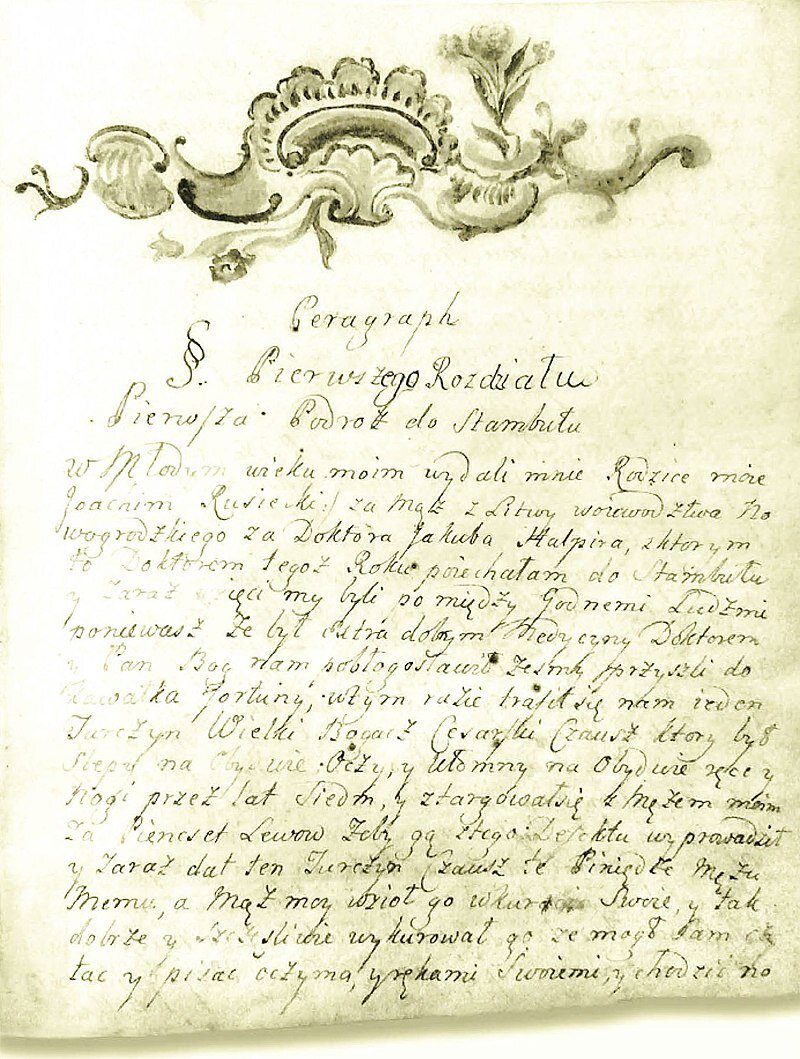 Peragraph
§. Pierwszego Rozdziału
Pierwsza Podroż do Stambułu
w Młodym wieku moim wydali mnie Rodzice moie
Joachim Rusiecki :/ za Mąż z Litwy woiewodztwa No
wogrodzkiego za Doktora Jakuba Halpira, zktorym
to Doktorem tegoż Roku poiechałam do Stambułu
y Zaraż wzięci my byli pomiędzy Godnemi Ludzmi
poniewasz że był Extra dobrym Medycyny Doktorem
y Pan Bog nam pobłogosławił żeśmy przyszli do
kawałka Fortuny, wtym razie trafił się nam ieden
Turczyn Wielki Bogacz Cesarski Czausz ktory był
Slepy na Obydwie Oczy, y Ułomny na Obydwie ręce y
Nogi przez lat Siedm, y ztargowałsię z Mężem moim
za Piencset Lewow żeby gą ztego Defektu wyprowadził
y Zaraż dał ten Turczyn Czausz te Piniędze Mężu
Memu, a Mąż moy wzioł go w Swoie, y tak
dobrze y Szczęsliwie wykurował go ze mogł Sam czy
tac y pisac oczyma, y rękami Swoiemi, y chodzic no